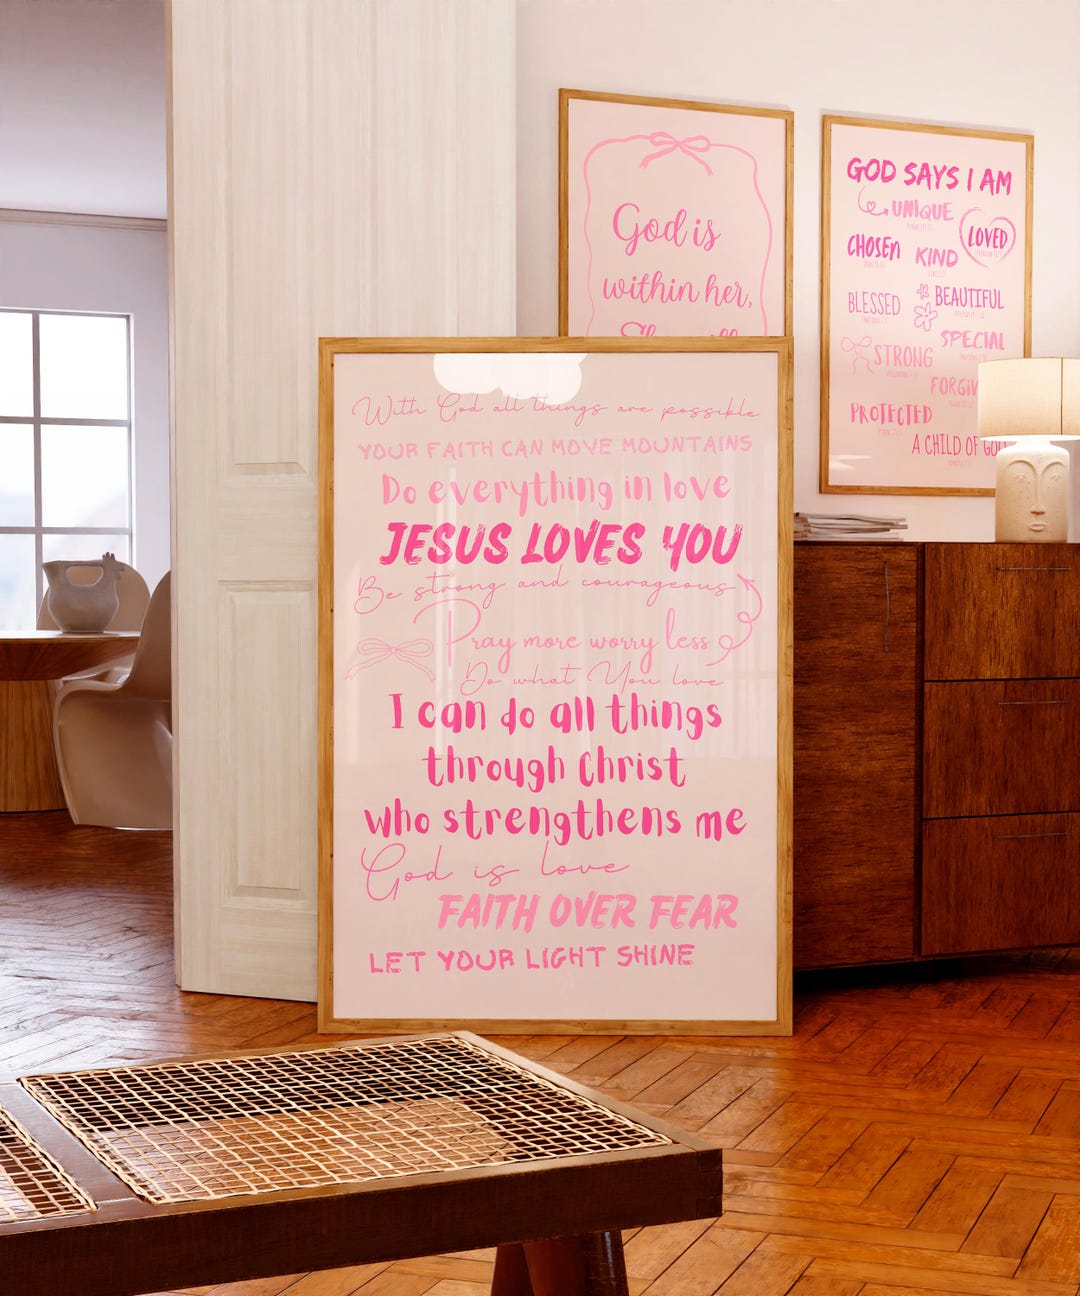 God is
within her,
GOD SAYS I AM
UNIQUE
LOVED
CHOSEN
KIND
BLESSED
BEAUTIFUL
SPECIAL
STRONG
FORGIV
PROTECTED
A CHILD OF GOD
With God all things are possible
YOUR FAITH CAN MOVE MOUNTAINS
Do everything in love
JESUS LOVES YOU
Be strong and courageous
Pray more worry less
Do what You love
I can do all things
through Christ
who strengthens me
God is love
FAITH OVER FEAR
LET YOUR LIGHT SHINE